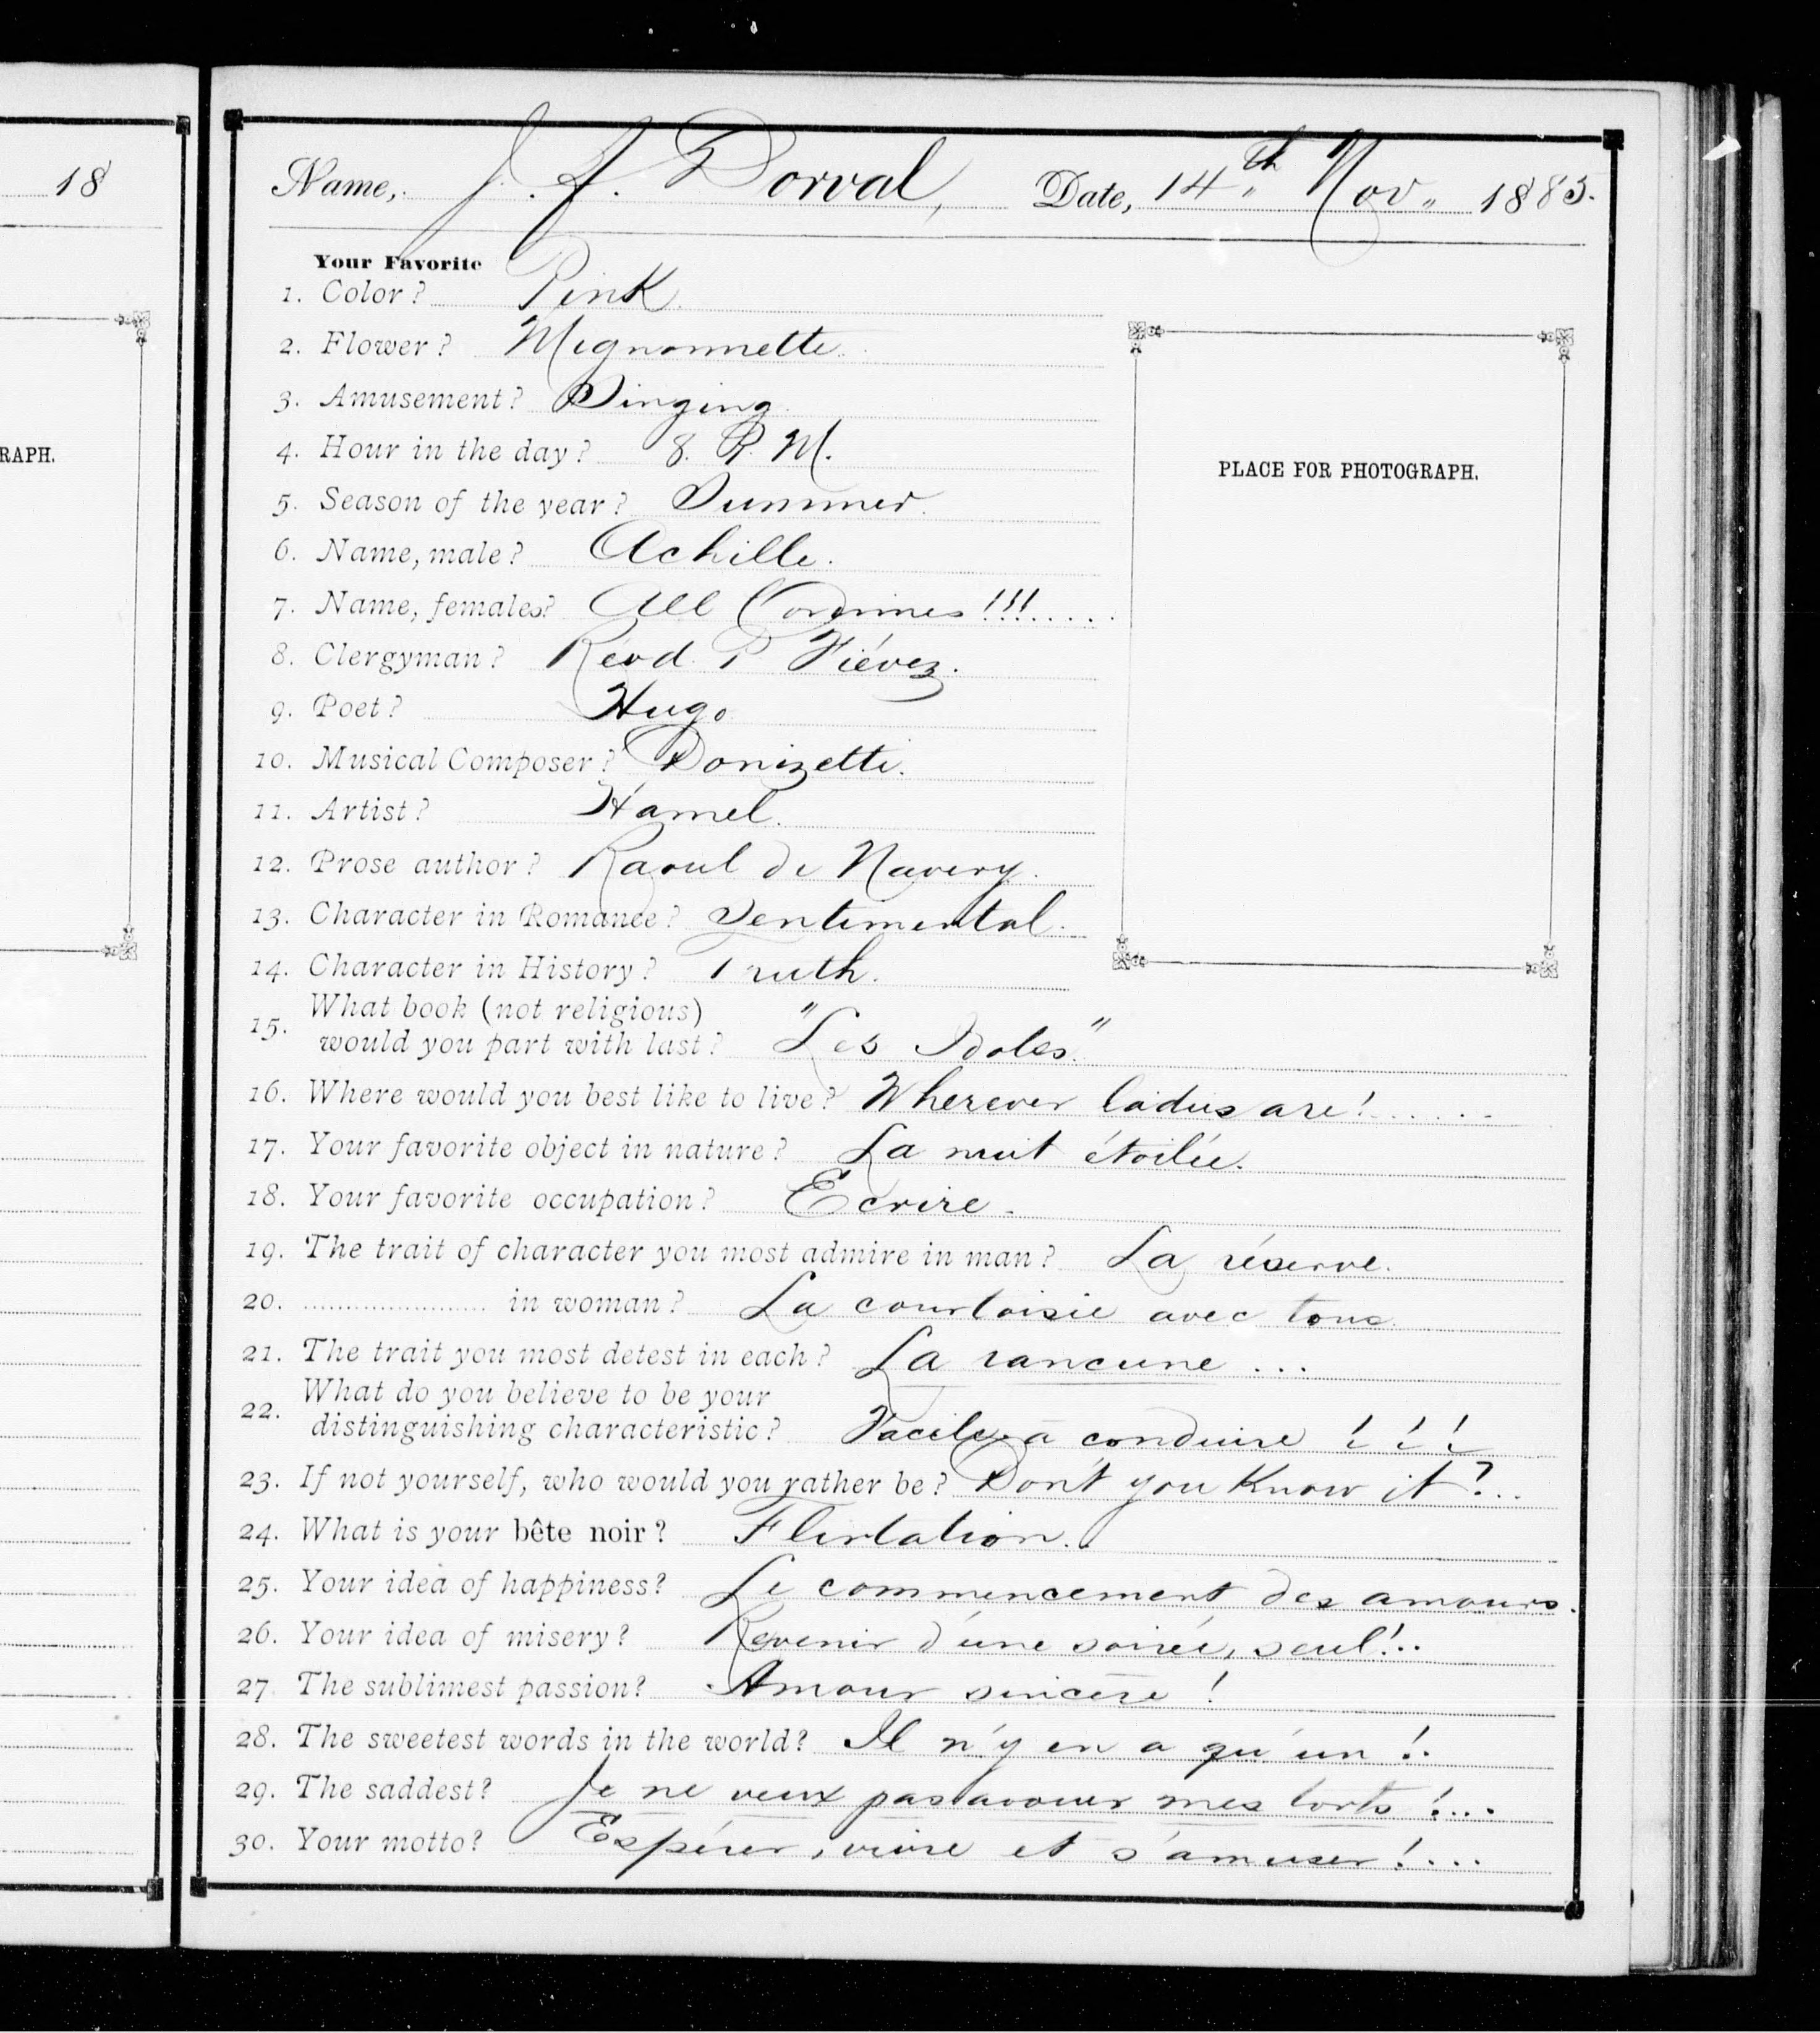 18
RAPH.
Name, J. A. Dorval, Date, 14th Nov. 1885.
Your Favorite
1. Color? Pink.
2. Flower? Mignonnette.
3. Amusement? Singing.
4. Hour in the day? 8. P. M.
5. Season of the year? Summer.
6. Name, male? Achille.
7. Name, females? All !!!....
8. Clergyman? Revd. P Fiévez.
9. Poet? Hugo
10. Musical Composer? Donizetti.
11. Artist? Hamel.
12. Prose author? Raoul de Navery.
13. Character in Romance? Sentimental.
14. Character in History? Truth.
PLACE FOR PHOTOGRAPH.
15. What book (not religious)
would you part with last? "Les Idoles."
16. Where would you best like to live? Wherever ladies are!......
17. Your favorite object in nature? La nuit étoilée.
18. Your favorite occupation? Ecrire.
19. The trait of character you most admire in man? La réserve.
20. .................... in woman? La courtoisie avec tous.
21. The trait you most detest in each? La rancune ...
22. What do you believe to be your
distinguishing characteristic? Facile à conduire ! ! !
23. If not yourself, who would you rather be? Don't you Know it?..
24. What is your bête noir? Flirtation.
25. Your idea of happiness? Le commencement des amours.
26. Your idea of misery? Revenir d'une soirée, seul!..
27. The sublimest passion? Amour sincère !
28. The sweetest words in the world? Il n'y en a qu'un !..
29. The saddest? Je ne veux pas avouer mes torts !...
30. Your motto? Espérer, vivre et s'amuser!....